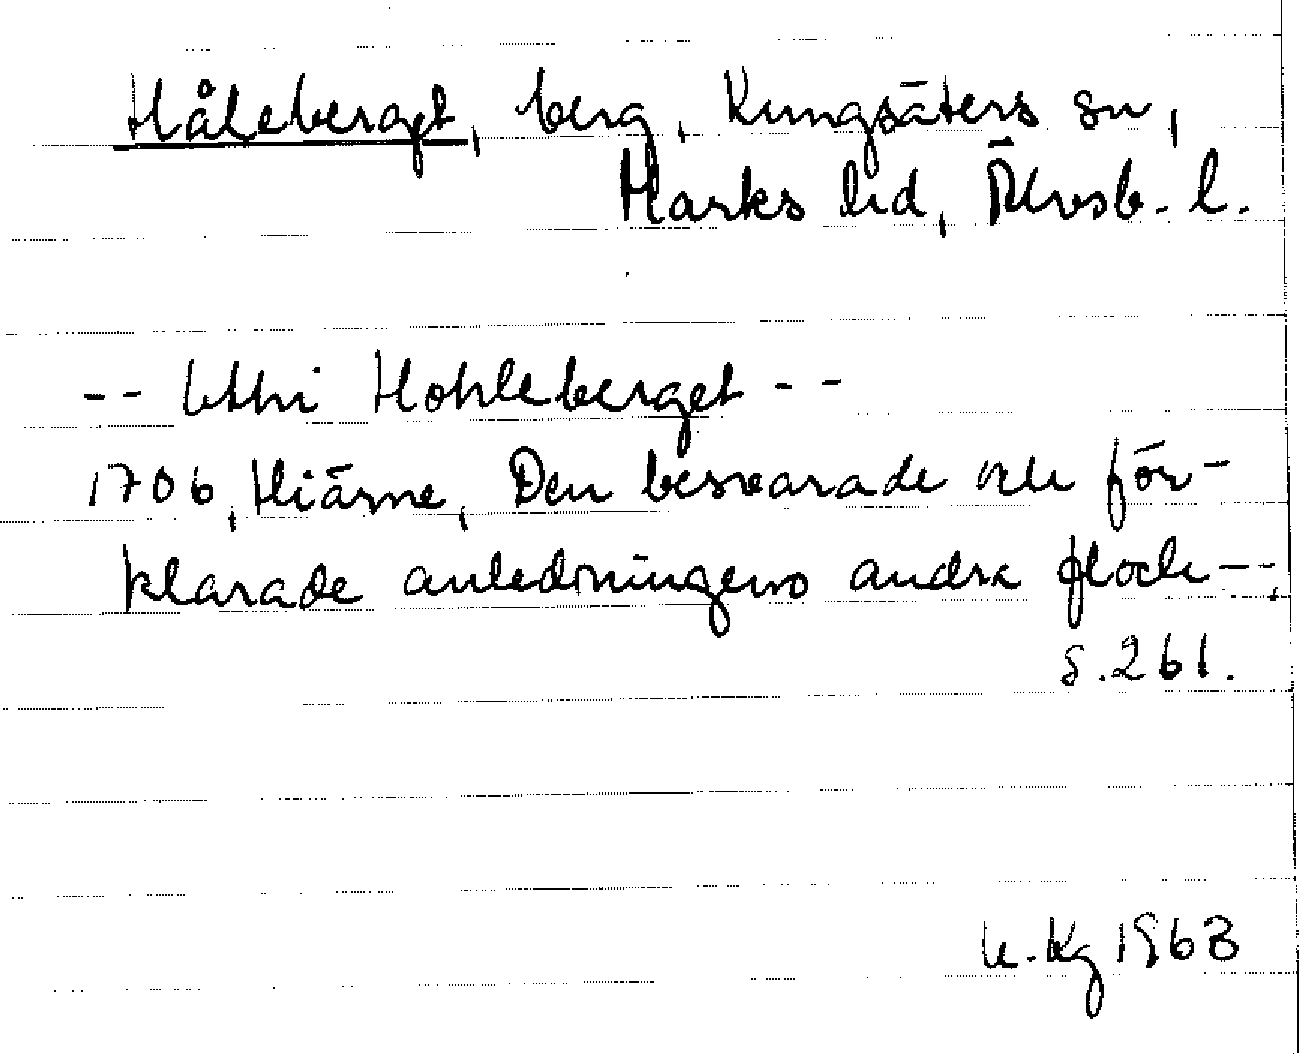 Håleberget, berg, Kungsäters sn,
Marks hd, Älvsb. l.
-- Uthi Hohleberget --
1706, Hiärne, Den besvarade och för-
klarade anledningens andra flock--,
s. 261.
K. Kg 1963